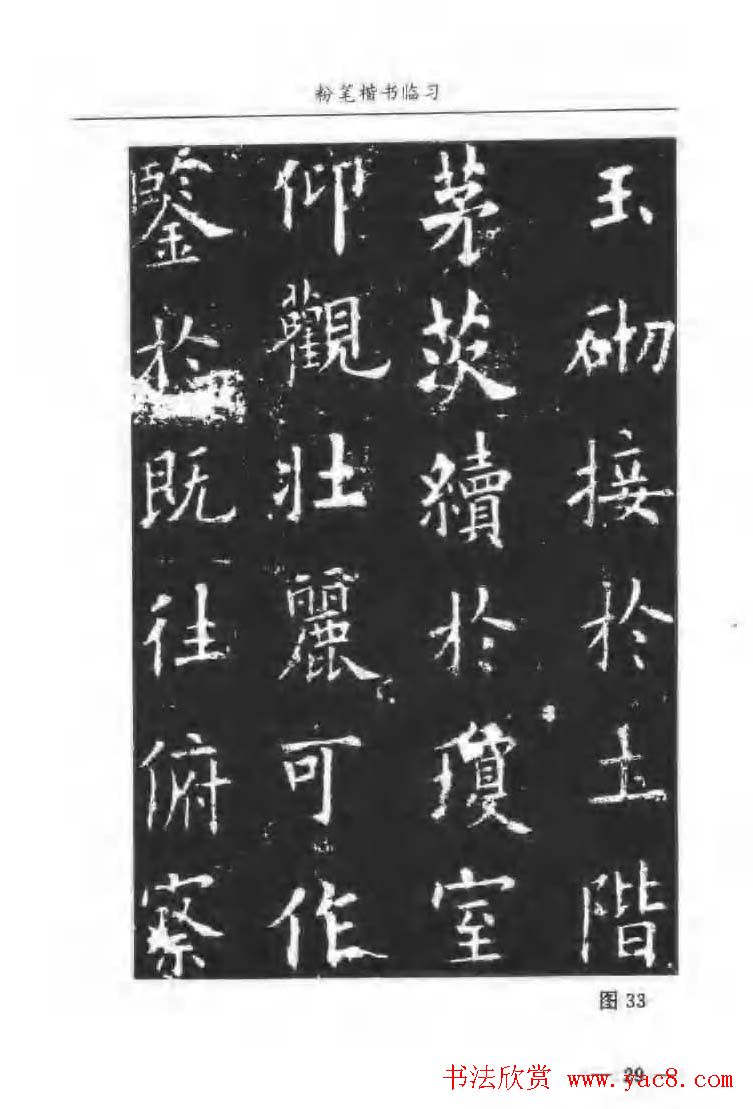 粉笔楷书临习
玉砌接於土階
茅茨續於瓊室
仰觀壯麗可作
鋻於既往俯察
图 33
— 29 —
书法欣赏 www.yac8.com